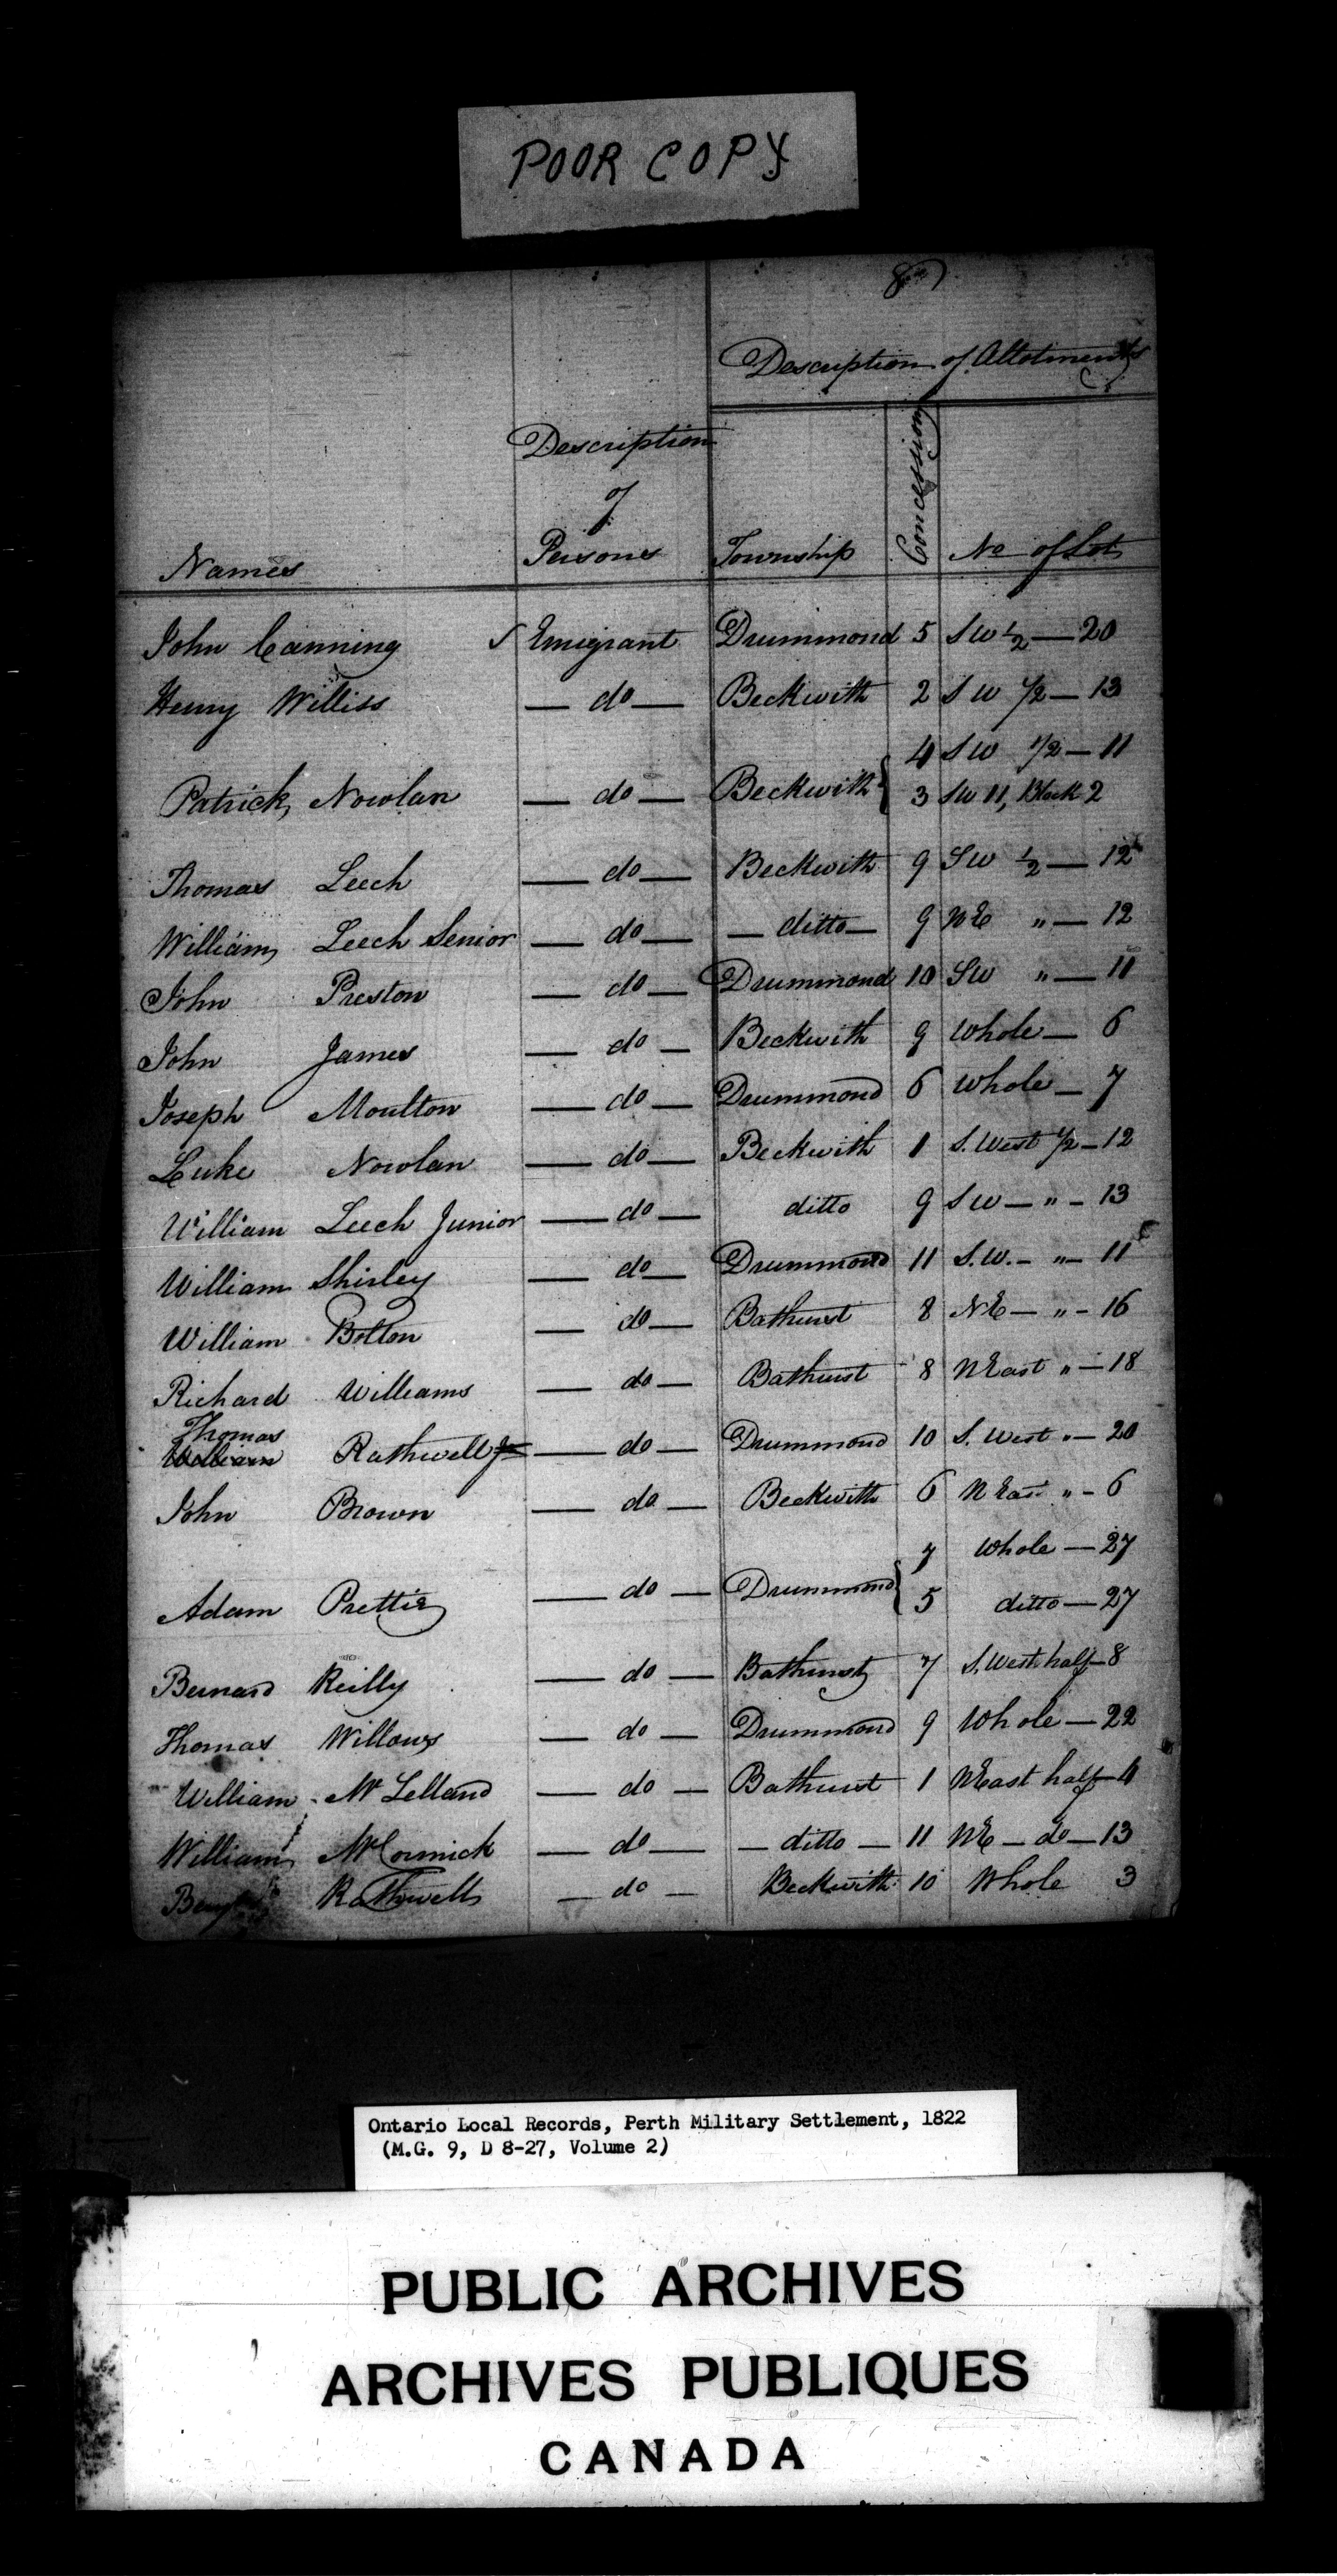 POOR COPY
Description of Allotments
Description
of
Persons
Names
Township
Concession
No of Lot
John Canning ✓ Emigrant Drummond 5 SW ½ — 20
Henry Williss — do — Beckwith 2 S W 1/2 — 13
4 SW 1/2 — 11
Patrick Nowlan — do — Beckwith { 3 SW 11, Block 2
Thomas Leech — do — Beckwith 9 SW ½ — 12
William Leech Senior — do — — ditto — 9 NE " — 12
John Preston — do — Drummond 10 SW " — 11
John James — do — Beckwith 9 Whole — 6
Joseph Moulton — do — Drummond 6 Whole — 7
Luke Nowlan — do — Beckwith 1 S. West 1/2 — 12
William Leech Junior — do — ditto 9 SW — " — 13
William Shirley — do — Drummond 11 S.W. — " — 11
William Bolton — do — Bathurst 8 NE — " — 16
Richard Williams — do — Bathurst 8 N East " — 18
Thomas
William Rathwell Jr — do — Drummond 10 S. West " — 20
John Brown — do — Beckwith 6 N East " — 6
7 Whole — 27
Adam Prettie — do — Drummond { 5 ditto — 27
Bernard Reilly — do — Bathurst 7 S. West half — 8
Thomas Willows — do — Drummond 9 Whole — 22
William McLelland — do — Bathurst 1 N East half — 4
William McCormick — do — — ditto — 11 NE — do — 13
Rathwell — do — Beckwith 10 Whole 3
Ontario Local Records, Perth Military Settlement, 1822
(M.G. 9, D 8-27, Volume 2)
PUBLIC ARCHIVES
ARCHIVES PUBLIQUES
CANADA